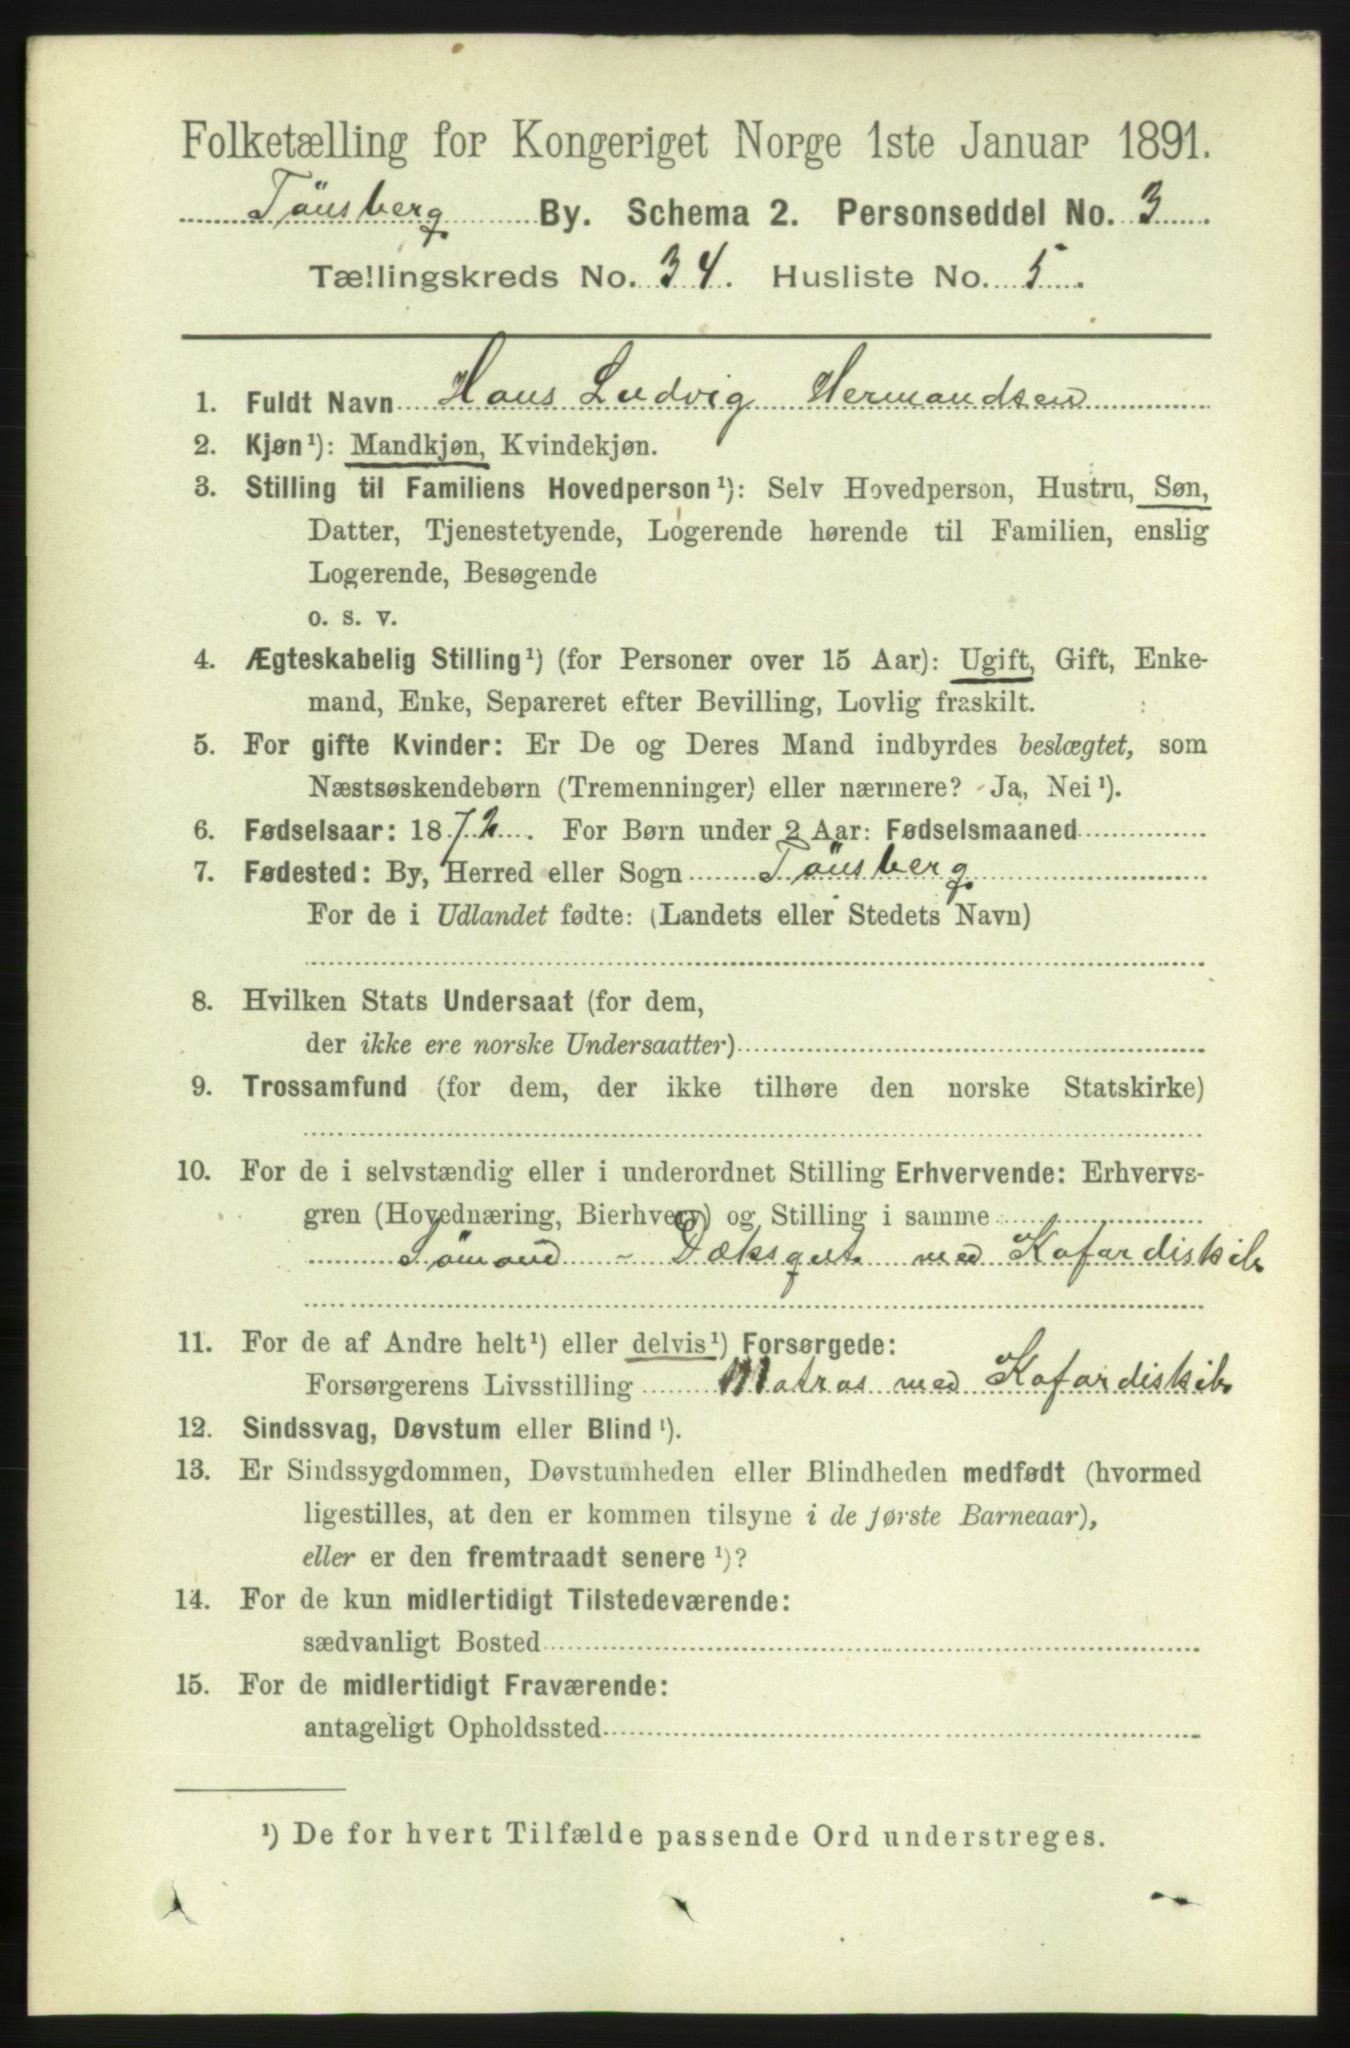 Folketælling for Kongeriget Norge 1ste Januar 1891.
Tönsberg By. Schema 2. Personseddel No. 3
Tællingskreds No. 34. Husliste No. 5.
1. Fuldt Navn Hans Ludvig Hermandsen
2. Kjøn¹): Mandkjøn, Kvindekjøn.
3. Stilling til Familiens Hovedperson¹): Selv Hovedperson, Hustru, Søn,
Datter, Tjenestetyende, Logerende hørende til Familien, enslig
Logerende, Besøgende
o. s. v.
4. Ægteskabelig Stilling¹) (for Personer over 15 Aar): Ugift, Gift, Enke-
mand, Enke, Separeret efter Bevilling, Lovlig fraskilt.
5. For gifte Kvinder: Er De og Deres Mand indbyrdes beslægtet, som
Næstsøskendebørn (Tremenninger) eller nærmere? Ja, Nei¹).
6. Fødselsaar: 1872. For Børn under 2 Aar: Fødselsmaaned
7. Fødested: By, Herred eller Sogn Tönsberg
For de i Udlandet fødte: (Landets eller Stedets Navn)
8. Hvilken Stats Undersaat (for dem,
der ikke ere norske Undersaatter)
9. Trossamfund (for dem, der ikke tilhøre den norske Statskirke)
10. For de i selvstændig eller i underordnet Stilling Erhvervende: Erhvervs-
gren (Hovednæring, Bierhverv) og Stilling i samme
Sömand - Dæksgut med Kofardiskib
11. For de af Andre helt¹) eller delvis¹) Forsørgede:
Forsørgerens Livsstilling Matros med Kofardiskib
12. Sindssvag, Døvstum eller Blind¹).
13. Er Sindssygdommen, Døvstumheden eller Blindheden medfødt (hvormed
ligestilles, at den er kommen tilsyne i de første Barneaar),
eller er den fremtraadt senere¹)?
14. For de kun midlertidigt Tilstedeværende:
sædvanligt Bosted
15. For de midlertidigt Fraværende:
antageligt Opholdssted
¹) De for hvert Tilfælde passende Ord understreges.